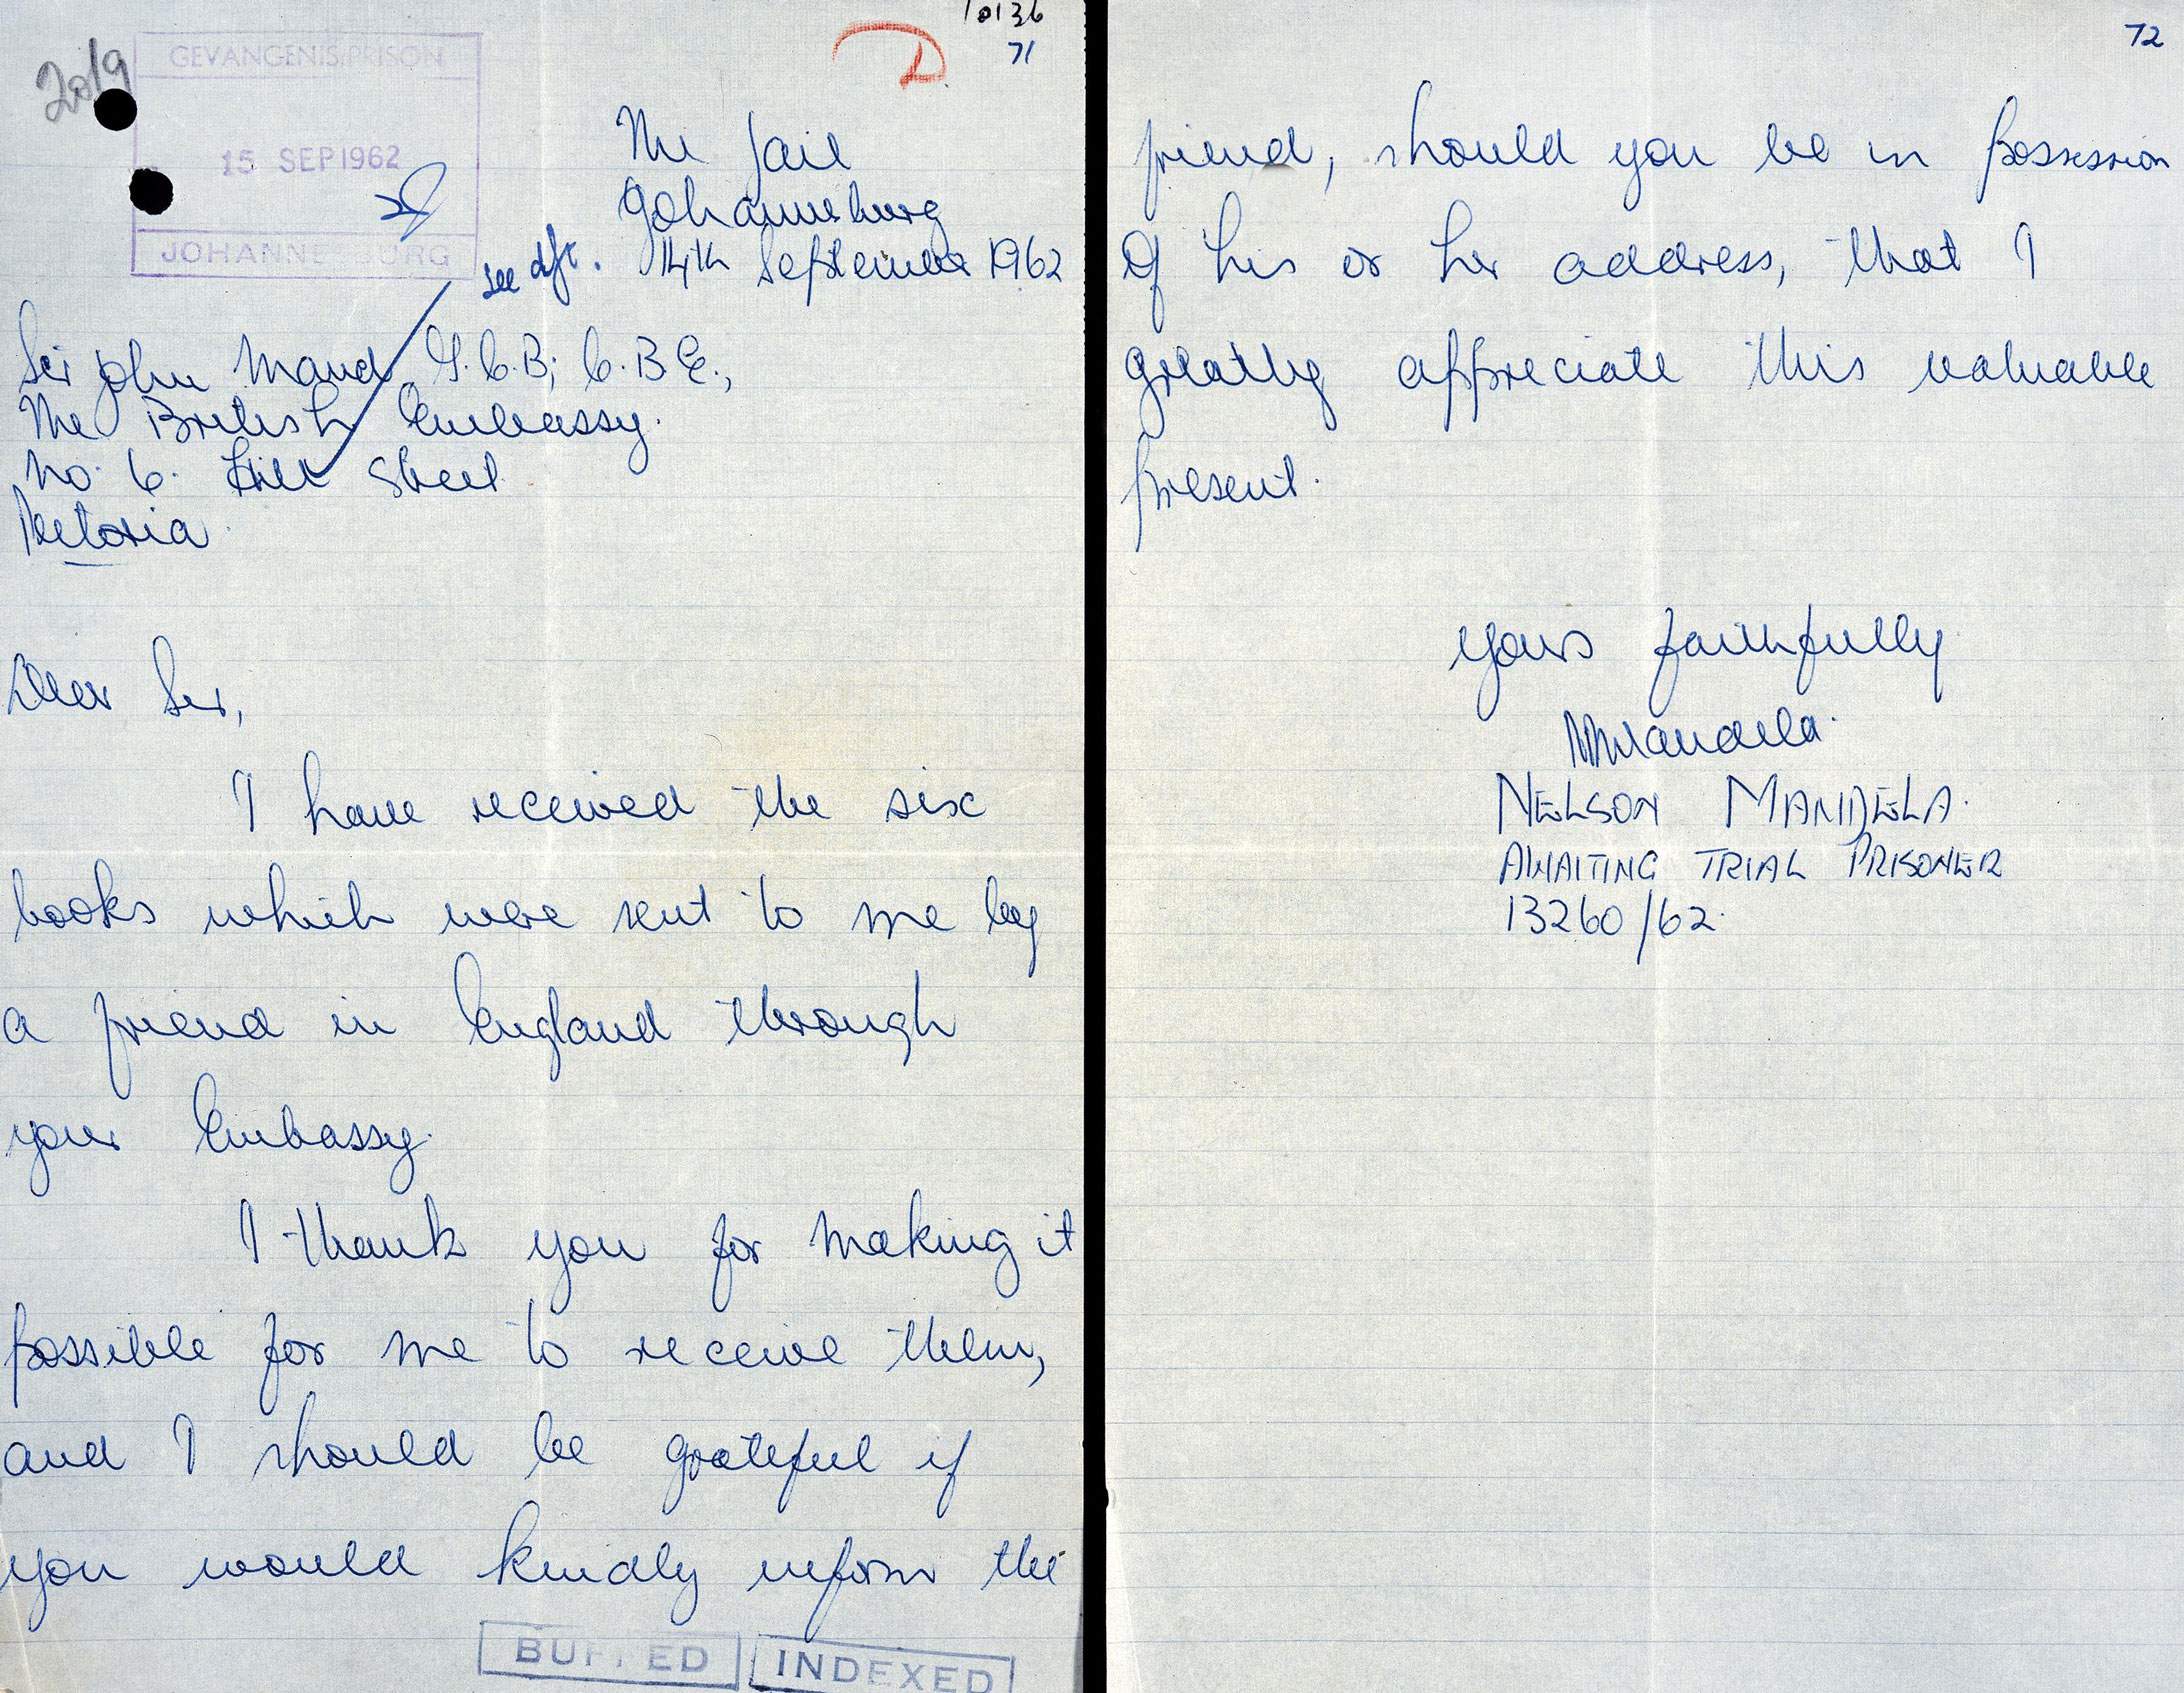 10136
71
20/9
GEVANGENIS PRISON
15 SEP 1962
JOHANNE BURG
The Jail
Johannesburg
see dft. 14th September 1962
Sir John Maud G.C.B; C.B.E.,
The British Embassy.
No. 6. Hill Street
Pretoria.
Dear Sir,
I have received the six
books which were sent to me by
a friend in England through
your Embassy.
I thank you for making it
possible for me to receive them,
and I should be grateful if
you would kindly inform the
INDEXED
72
friend, should you be in possession
of his or her address, that I
greatly appreciate this valuable
present.
Yours faithfully
NMandela.
NELSON MANDELA.
AWAITING TRIAL PRISONER
13260/62.